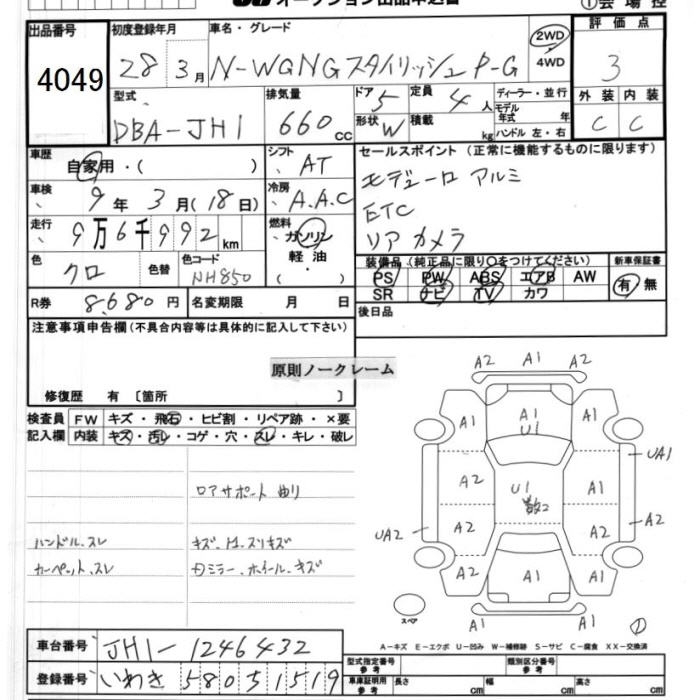 オークション出品申込書
①会場控
出品番号
4049
初度登録年月
28 3月
車名・グレード
N-WGNGスタイリッシュ P-G
2WD
4WD
評価点
3
型式
DBA-JH1
排気量
660 cc
ドア 5
形状 W
定員 4 人
積載 kg
ディーラー・並行
モデル年式 年
ハンドル 左・右
外装 内装
C C
車歴
自家用・( )
シフト
AT
車検
9年 3月(18日)
冷房
A.A.C
走行
9万6千992km
燃料
ガソリン
軽油
( )
色
クロ
色替
色コード
NH850
セールスポイント(正常に機能するものに限ります)
モデューロ アルミ
ETC
リア カメラ
装備品(純正品に限り○をつけてください)
PS PW ABS エアB AW
SR ナビ TV カワ
新車保証書
有・無
R券 8,680円
名変期限 月 日
後日品
注意事項申告欄(不具合内容等は具体的に記入して下さい)
原則ノークレーム
修復歴 有〔箇所 〕
検査員 FW キズ・飛石・ヒビ割・リペア跡・×要
記入欄 内装 キズ・汚レ・コゲ・穴・スレ・キレ・破レ
ロアサポート曲り
ハンドル、スレ
カーペット、スレ
ミラー、ホイール、キズ
A2 A1 A2
A1 A1 U1 A1
UA1
A2 U1 A1
UA2 A2 A2 A2
A2 A1 A1
スペア
A1
①
A-キズ E-エクボ U-凹み W-補修跡 S-サビ C-腐食 XX-交換済
車台番号 JH1-1246432
登録番号 いわき 580 う 1519
型式指定番号 参考
類別区分番号 参考
車庫証明用 参考 長さ cm 幅 cm 高さ cm